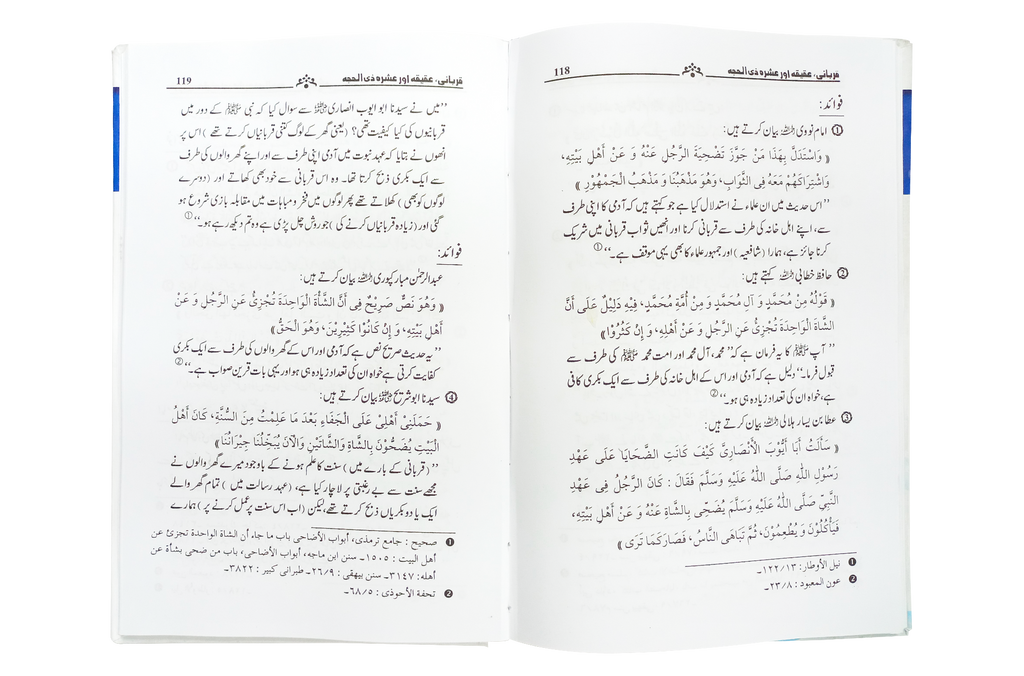 118 قربانی، عقیقہ اور عشرہ ذی الحجہ
فوائد:
① امام نووی رحمہ اللہ بیان کرتے ہیں:
﴿ وَاسْتَدَلَّ بِهَذَا مَنْ جَوَّزَ تَضْحِيَةَ الرَّجُلِ عَنْهُ وَ عَنْ أَهْلِ بَيْتِهِ،
وَاشْتِرَاكَهُمْ مَعَهُ فِي الثَّوَابِ، وَهُوَ مَذْهَبُنَا وَ مَذْهَبُ الْجَمْهُورِ ﴾
’’اس حدیث میں ان علماء نے استدلال کیا ہے جو کہتے ہیں کہ آدمی کا اپنی طرف
سے، اپنے اہل خانہ کی طرف سے قربانی کرنا اور انھیں ثواب قربانی میں شریک
کرنا جائز ہے، ہمارا (شافعیہ) اور جمہور علماء کا بھی یہی موقف ہے۔‘‘①
② حافظ خطابی رحمہ اللہ کہتے ہیں:
﴿ قَوْلُهُ مِنْ مُحَمَّدٍ وَ آلِ مُحَمَّدٍ وَ مِنْ أُمَّةِ مُحَمَّدٍ، فِيهِ دَلِيلٌ عَلَى أَنَّ
الشَّاةَ الْوَاحِدَةَ تُجْزِئُ عَنِ الرَّجُلِ وَ عَنْ أَهْلِهِ، وَ إِنْ كَثُرُوا ﴾
’’ آپ ﷺ کا یہ فرمان ہے کہ ’’محمد، آل محمد اور امت محمد ﷺ کی طرف سے
قبول فرما۔‘‘ دلیل ہے کہ آدمی اور اس کے اہل خانہ کی طرف سے ایک بکری کافی
ہے، خواہ ان کی تعداد زیادہ ہی ہو۔‘‘②
③ عطا بن یسار ہلالی رحمہ اللہ بیان کرتے ہیں:
﴿ سَأَلْتُ أَبَا أَيُّوبَ الْأَنْصَارِيَّ كَيْفَ كَانَتِ الضَّحَايَا عَلَى عَهْدِ
رَسُولِ اللهِ صَلَّى اللهُ عَلَيْهِ وَسَلَّمَ فَقَالَ : كَانَ الرَّجُلُ فِي عَهْدِ
النَّبِيِّ صَلَّى اللهُ عَلَيْهِ وَسَلَّمَ يُضَحِّي بِالشَّاةِ عَنْهُ وَ عَنْ أَهْلِ بَيْتِهِ،
فَيَأْكُلُونَ وَ يُطْعِمُونَ، ثُمَّ تَبَاهَى النَّاسُ، فَصَارَ كَمَا تَرَى ﴾
❶ نيل الأوطار: ١٢٢/١٣۔
❷ عون المعبود : ٢٣/٨۔
119 قربانی، عقیقہ اور عشرہ ذی الحجہ
’’میں نے سیدنا ابو ایوب انصاری رضی اللہ عنہ سے سوال کیا کہ نبی ﷺ کے دور میں
قربانیوں کی کیا کیفیت تھی؟ (یعنی گھر کے لوگ کتنی قربانیاں کرتے تھے) اس پر
انھوں نے بتایا کہ عہد نبوت میں آدمی اپنی طرف سے اور اپنے گھر والوں کی طرف
سے ایک بکری ذبح کرتا تھا۔ وہ اس قربانی سے خود بھی کھاتے اور (دوسرے
لوگوں کو بھی) کھلاتے تھے پھر لوگوں میں فخر و مباہات میں مقابلہ بازی شروع ہو
گئی اور (زیادہ قربانیاں کرنے کی) جو روش چل پڑی ہے وہ تم دیکھ رہے ہو۔‘‘①
فوائد:
عبدالرحمٰن مبارکپوری رحمہ اللہ بیان کرتے ہیں:
﴿ وَهُوَ نَصٌّ صَرِيحٌ فِي أَنَّ الشَّاةَ الْوَاحِدَةَ تُجْزِئُ عَنِ الرَّجُلِ وَ عَنْ
أَهْلِ بَيْتِهِ، وَ إِنْ كَانُوا كَثِيرِينَ، وَهُوَ الْحَقُّ ﴾
’’یہ حدیث صریح نص ہے کہ آدمی اور اس کے گھر والوں کی طرف سے ایک بکری
کفایت کرتی ہے خواہ ان کی تعداد زیادہ ہی ہو اور یہی بات قرین صواب ہے۔‘‘②
④ سیدنا ابو شریح رضی اللہ عنہ بیان کرتے ہیں:
﴿ حَمَلَنِي أَهْلِي عَلَى الْجَفَاءِ بَعْدَ مَا عَلِمْتُ مِنَ السُّنَّةِ، كَانَ أَهْلُ
الْبَيْتِ يُضَحُّونَ بِالشَّاةِ وَالشَّاتَيْنِ وَالْآنَ يُبَخِّلُنَا جِيرَانُنَا ﴾
’’(قربانی کے بارے میں) سنت کا علم ہونے کے باوجود میرے گھر والوں نے
مجھے سنت سے بے رغبتی پر لاچار کیا ہے، (عہد رسالت میں) تمام گھر والے
ایک یا دو بکریاں ذبح کرتے تھے، لیکن (اب اس سنت پر عمل کرنے پر) ہمارے
❶ صحيح : جامع ترمذى، أبواب الأضاحى باب ما جاء أن الشاة الواحدة تجزئ عن
أهل البيت : ١٥٠٥۔ سنن ابن ماجه، أبواب الأضاحى، باب من ضحى بشاة عن
أهله: ٣١٤٧۔ سنن بيهقى : ٢٦/٩۔ طبرانى كبير : ٣٨٢٢۔
❷ تحفة الأحوذى : ٦٨/٥۔